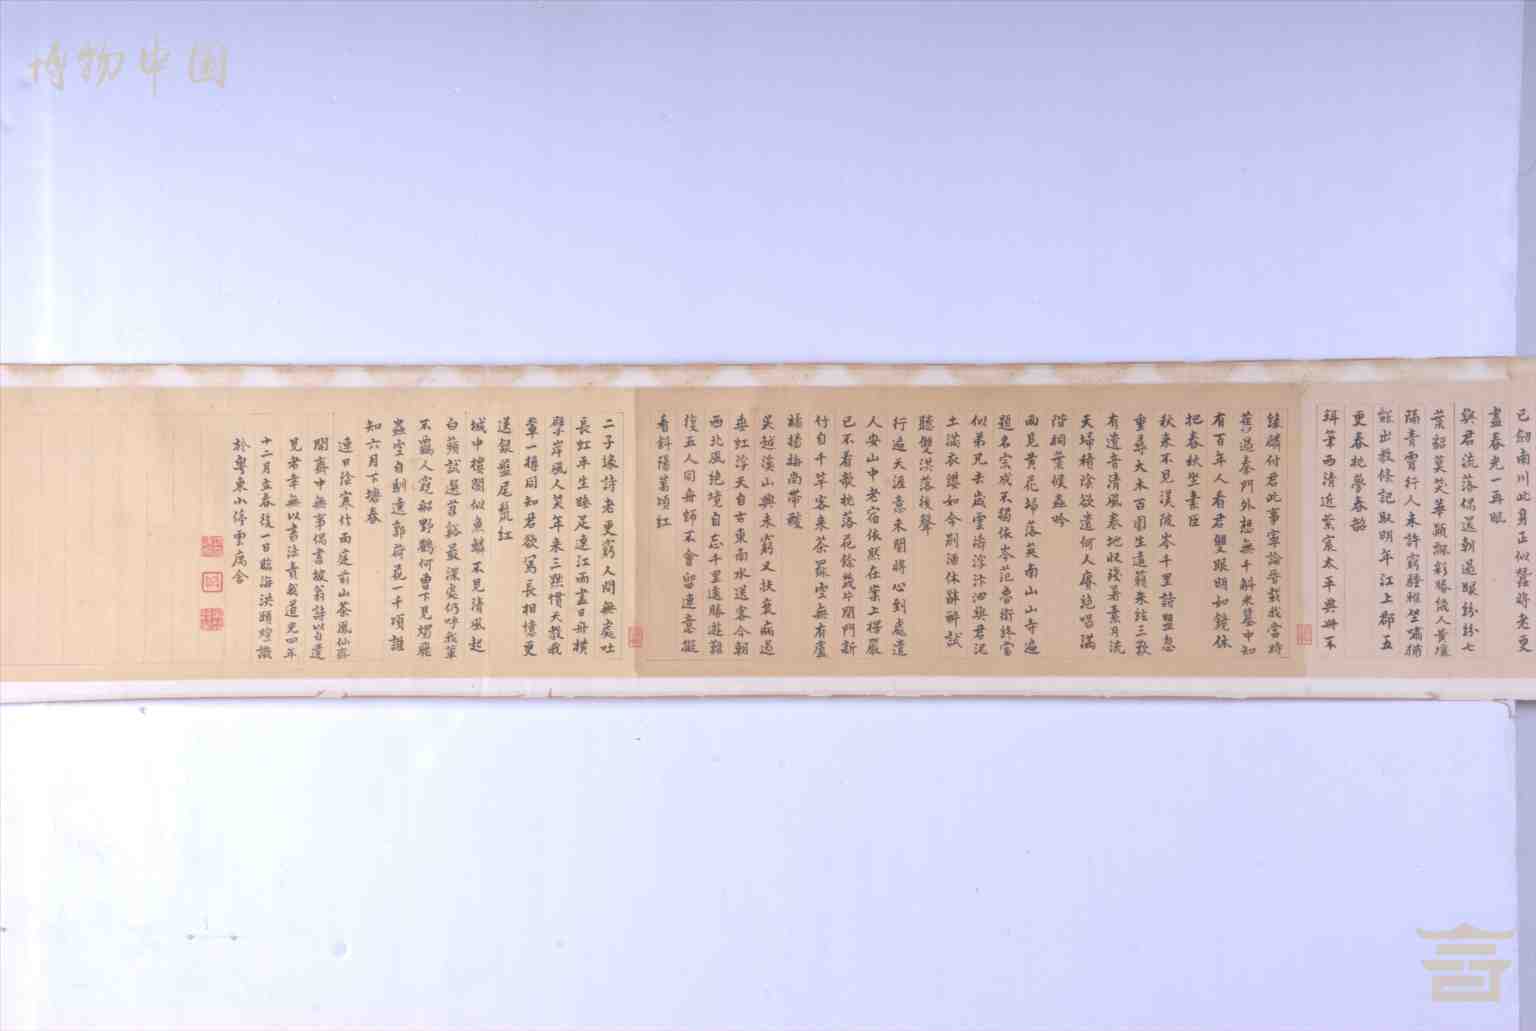 已劒南川此身正似蠶將老更
盡春光一再眠
與君流落偶還朝過眼紛紛七
葉貂莫笑華顛飄彩勝幾人黄壤
隔青霄行人未許窮騷雅坐嘯猶
能出教條記取明年江上郡五
更春枕夢春韶
珥筆西清近紫宸太平典冊不
緣麟付君此事寧論晉載我當時
舊過秦門外想無千斛米墓中知
有百年人看君雙眼明如鏡休
把春秋坐素臣
秋來不見渼陂岑千里詩盟忽
重尋大木百圍生遠籟朱絃三歎
有遺音清風卷地收殘暑素月流
天掃積陰欲遣何人賡絶唱滿
階桐葉候蟲吟
面見黄花掃落英南山山寺遍
題名宗成不獨依岑范魯衛終當
似弟兄去歲雲濤浮汴泗與君泥
土滿衣纓如今別酒休辭醉試
聽雙洪落後聲
行遍天涯意未闌將心到處遣
人安山中老宿依然在案上楞嚴
已不看欹枕落花餘幾片閉門新
竹自千竿客來茶罷空無有盧
橘楊梅尚帶酸
吴越溪山興未窮又扶衰病過
垂虹浮天自古東南水送客今朝
西北風絶境自忘千里遠勝遊難
復五人同舟師不會留連意擬
看斜陽萬頃紅
二子緣詩老更窮人間無處吐
長虹平生睡足連江雨盡日舟橫
擘岸風人笑年來三黜慣天教我
輩一樽同知君欲寫長相憶更
送銀盤尾鬣紅
城中樓閣似魚鱗不見清風起
白蘋試選苕谿最深處仍呼我輩
不羈人窺船野鶴何曾下見燭飛
蟲空自馴遶郭荷花一千頃誰
知六月下塘春
連日陰寒竹雨庭前山茶鳳仙
閒齋中無事偶書坡翁詩以自遣
見者幸無以書法責我道光四年
十二月立春後一日臨海洪頤煊識
於粵東小停雲寓舍
博物中国